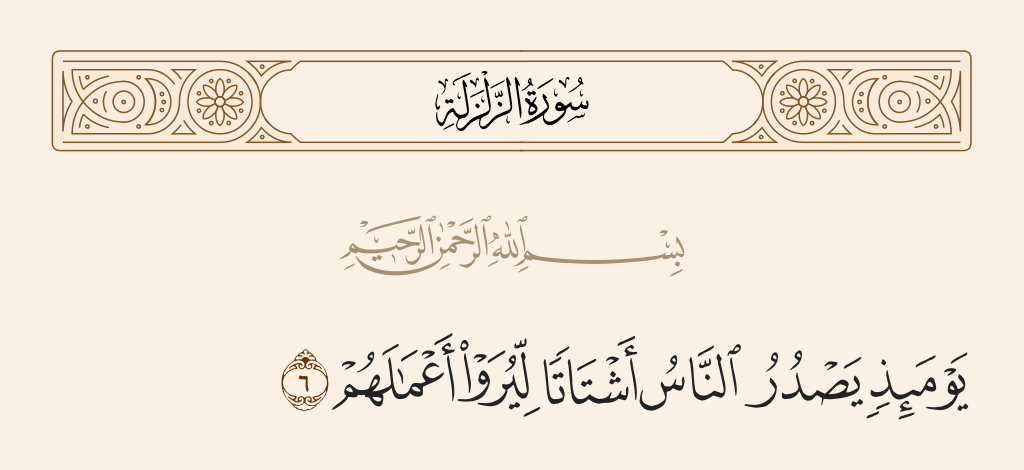 سُورَةُ الزَّلْزَلَةِ
بِسْمِ ٱللَّهِ ٱلرَّحْمَٰنِ ٱلرَّحِيمِ
يَوْمَئِذٍ يَصْدُرُ ٱلنَّاسُ أَشْتَاتًا لِّيُرَوْا۟ أَعْمَٰلَهُمْ ٦